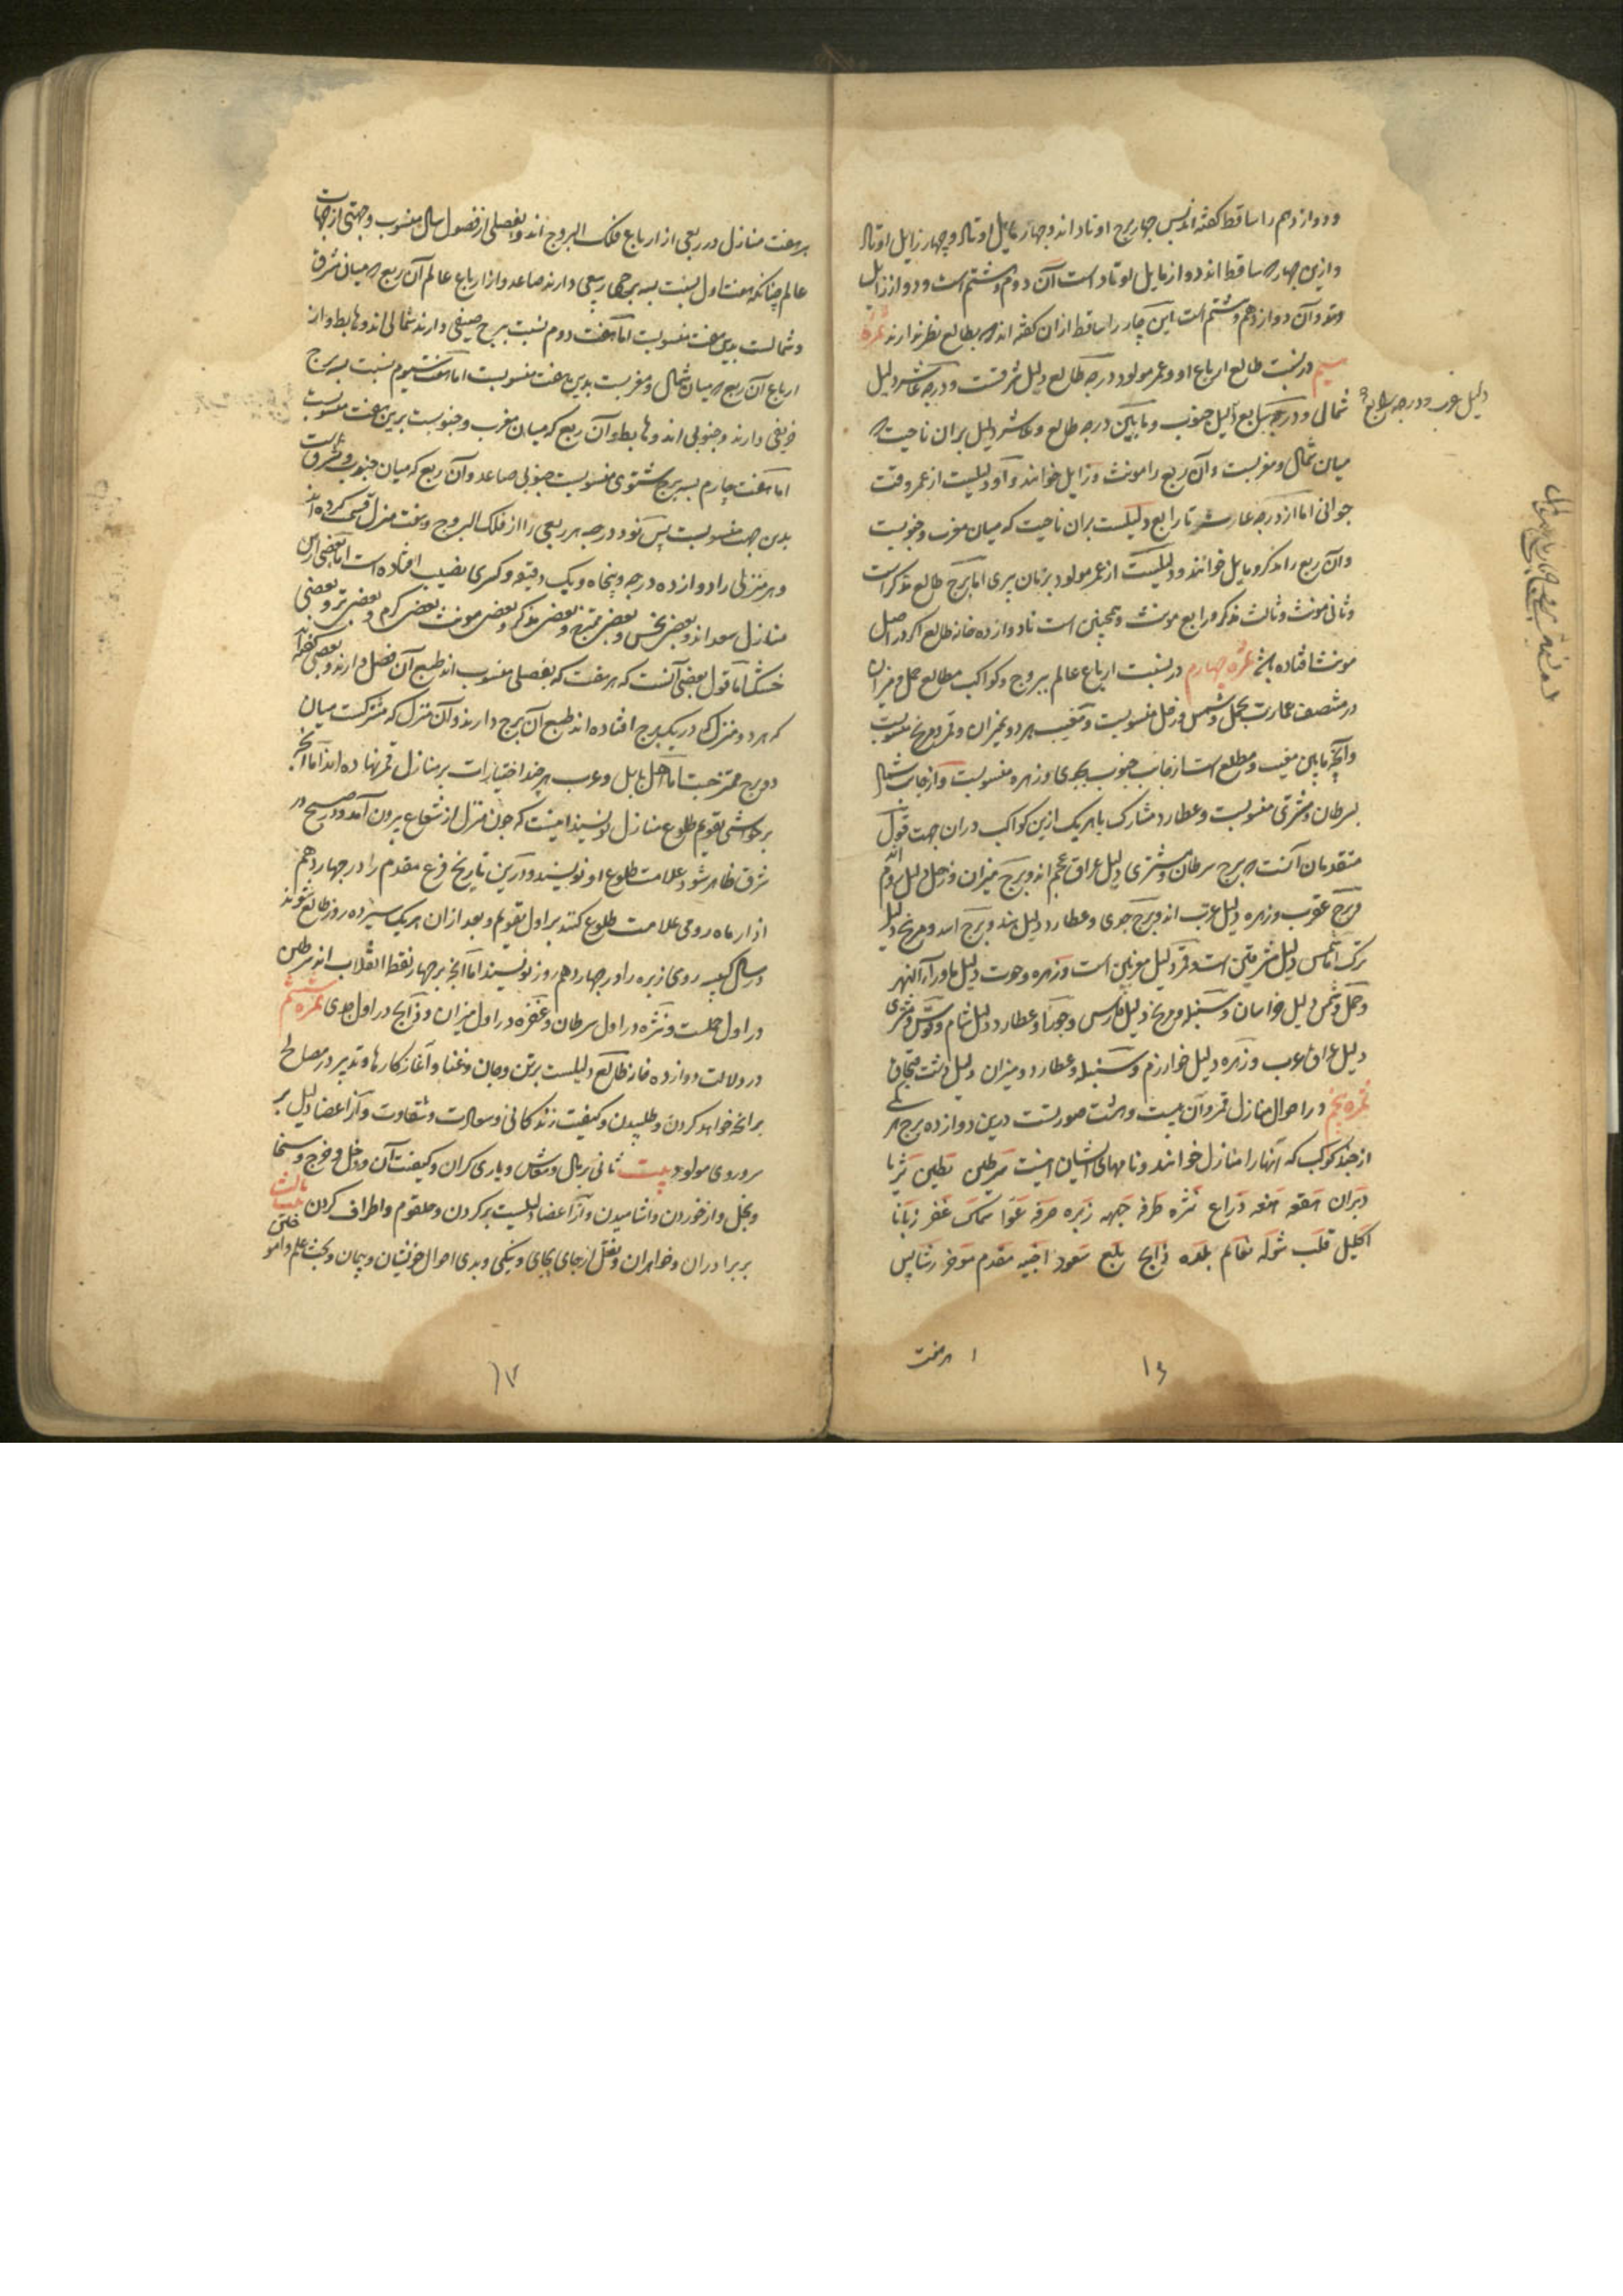 ودوازدهم را ساقط گفته‌اند پس چهار برج اوتاد اند و چهار مایل اوتاد و چهار زایل اوتاد
وازین چهار که ساقط اند دو از مایل اوتاد است آن دوم و هشتم است و دو از زایل
وتد و آن دوازدهم و ششم است این چار را ساقط ازان گفته اند که بطالع نظر ندارند ثمرهٔ
سیم در نسبت طالع ارباع او و عمر مولود درجه طالع دلیل شرقست و درجه عاشر دلیل
شمالی و درجه سابع دلیل جنوب و مابین درجه طالع و عاشر دلیل بران ناحیت که
دلیل غرب و درجه رابع
میان شمال و مغربست و آن ربع را مونث و زایل خوانند و او دلیلست از عمر وقت
جوانی اما از درجه عاشر تا رابع دلیلست بران ناحیت که میان مغرب و جنوبست
وآن ربع را مذکر و مایل خوانند و دلیلست از عمر مولود بزمان پیری اما برج طالع مذکر است
وثانی مونث و ثالث مذکر و رابع مونث و همچنین است تا دوازده خانه طالع اگر در اصل
مونث افتاده باشد ثمره چهارم در نسبت ارباع عالم ببروج و کواکب مطالع حمل و میزان
در منتصف عمارت بحمل و شمس و زحل منسوبست و مغیب هر دو بمیزان و قمر و مریخ منسوبست
وآنچه مابین مغیب و مطلع است از جانب جنوب بجدی و زهره منسوبست و از جانب شمال
بسرطان و مشتری منسوبست و عطارد مشارک با هر یک ازین کواکب دران جهت قول
متقدمان آنست که برج سرطان و مشتری دلیل عراق عجم اند و برج میزان و زحل دلیل روم اند
وبرج عقرب و زهره دلیل عرب اند و برج جدی و عطارد دلیل هند و برج اسد و مریخ دلیل
ترک اما شمس دلیل مشرقین است و قمر دلیل مغربین است و زهره و حوت دلیل ماوراءالنهر
وحمل و شمس دلیل خراسان و سنبله و مریخ دلیل فارس و جوزا و عطارد دلیل شام و قوس و مشتری
دلیل عراق عرب و زهره دلیل خوارزم و سنبله و عطارد و میزان دلیل دشت قبچاق
ثمره پنجم در احوال منازل قمر و آن بیست و هشت صورتست درین دوازده برج هر یکی
از چند کوکب که آنها را منازل خوانند و نامهای ایشان اینست شرطین بطین ثریا
دبران هقعه هنعه ذراع نثره طرفه جبهه زبره صرفه عوا سماک غفر زبانا
اکلیل قلب شوله نعایم بلده ذابح بلع سعود اخبیه مقدم موخر رشا پس
۱ هر هفت
۱۶
هر هفت منازل در ربعی از ارباع فلک البروج اند و بفصلی از فصول سال منسوب و جهتی از جهات
عالم چنانکه هفت اول نسبت بسه برج ربیعی دارند صاعد و از ارباع عالم آن ربع که میان شرق
وشمالست بدین هفت منسوبست اما هفت دوم نسبت ببرج صیفی دارند شمالی اند و هابط و از
ارباع آن ربع که میان شمال و مغربست بدین هفت منسوبست اما هفت سیوم نسبت بسه برج
خریفی دارند و جنوبی اند و هابط و آن ربع که میان مغرب و جنوبست برین هفت منسوبست
اما هفت چارم بسه برج شتوی منسوبست جنوبی صاعد و آن ربع که میان جنوب و مشرق است
بدین جهت منسوبست پس نود درجه هر ربعی را از فلک البروج و هفت منزل قسمت کرده اند
وهر منزلی را دوازده درجه و پنجاه و یک دقیقه و کسری نصیب افتاده است اما بعضی ازین
منازل سعد اند و بعضی نحس و بعضی ممتزج و بعضی مذکر و بعضی مونث بعضی گرم و بعضی تر و بعضی
خشک اما قول بعضی آنست که هر هفت که بفصلی منسوب اند طبع آن فصل دارند و بعضی گفته اند
که هر دو منزل که در یک برج افتاده اند طبع آن برج دارند و آن منزل که مشترکست میان
دو برج ممتزجست اما اهل بابل و عرب هر چند اختیارات بر منازل قمر نهاده اند اما آنچه
بر حواشی تقویم طلوع منازل نویسند اینست که چون منزل از شعاع بیرون آمد و در صبح در
شرق ظاهر شود علامت طلوع او نویسند و درین تاریخ فرع مقدم را در چهاردهم
اذار ماه رومی علامت طلوع کنند بر اول تقویم و بعد ازان هر یک سیزده روز طالع شوند
در سال کبیسه رومی زبره را در چهاردهم روز نویسند اما آنچه بر چهار نقطه انقلاب اند شرطین
در اول حملست و نثره در اول سرطان و غفره در اول میزان و ذابح در اول جدی ثمره ششم
در دلالت دوازده خانه طالع دلیلست بر تن و جان و غنا و آغاز کارها و تدبیر در مصالح
هر آنچه خواهد کردن و طلبیدن و کیفیت زندگانی و سعادت و شقاوت و از اعضا دلیل بر
سر و روی مولود بیت ثانی بر مال و معاش و یاری گران و کیفیت آن و دخل و خرج و سخا
وبخل و از خوردن و آشامیدن و از اعضا دلیلست بر گردن و حلقوم و اطراف گردن خانه ثالث
بر برادران و خواهران و نقل از جای بجای و نیکی و بدی احوال خویشان و پیمان و بحث علم و امو
۱۷